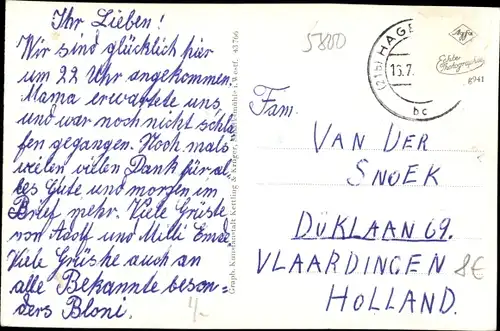 Ihr Lieben!
Wir sind glücklich hier
um 22 Uhr angekommen
Mama erwartete uns,
und war noch nicht schla
fen gegangen. Noch mals
vielen vielen Dank für al
les Gute und morgen im
Brief mehr. Viele Grüsse
von Adolf und Milli
Viele Grüshe auch an
alle Bekannte beson-
ders Bloni.
Graph. Kunstanstalt Kettling & Krüger, i. Westf. 43766
5800
(21b) HAGE
15.7.
bc
Agfa
Echte
Photographie
8941
Fam.
VAN DER
SNOEK
DÜKLAAN 69.
VLAARDINGEN
HOLLAND.
8€
4,-